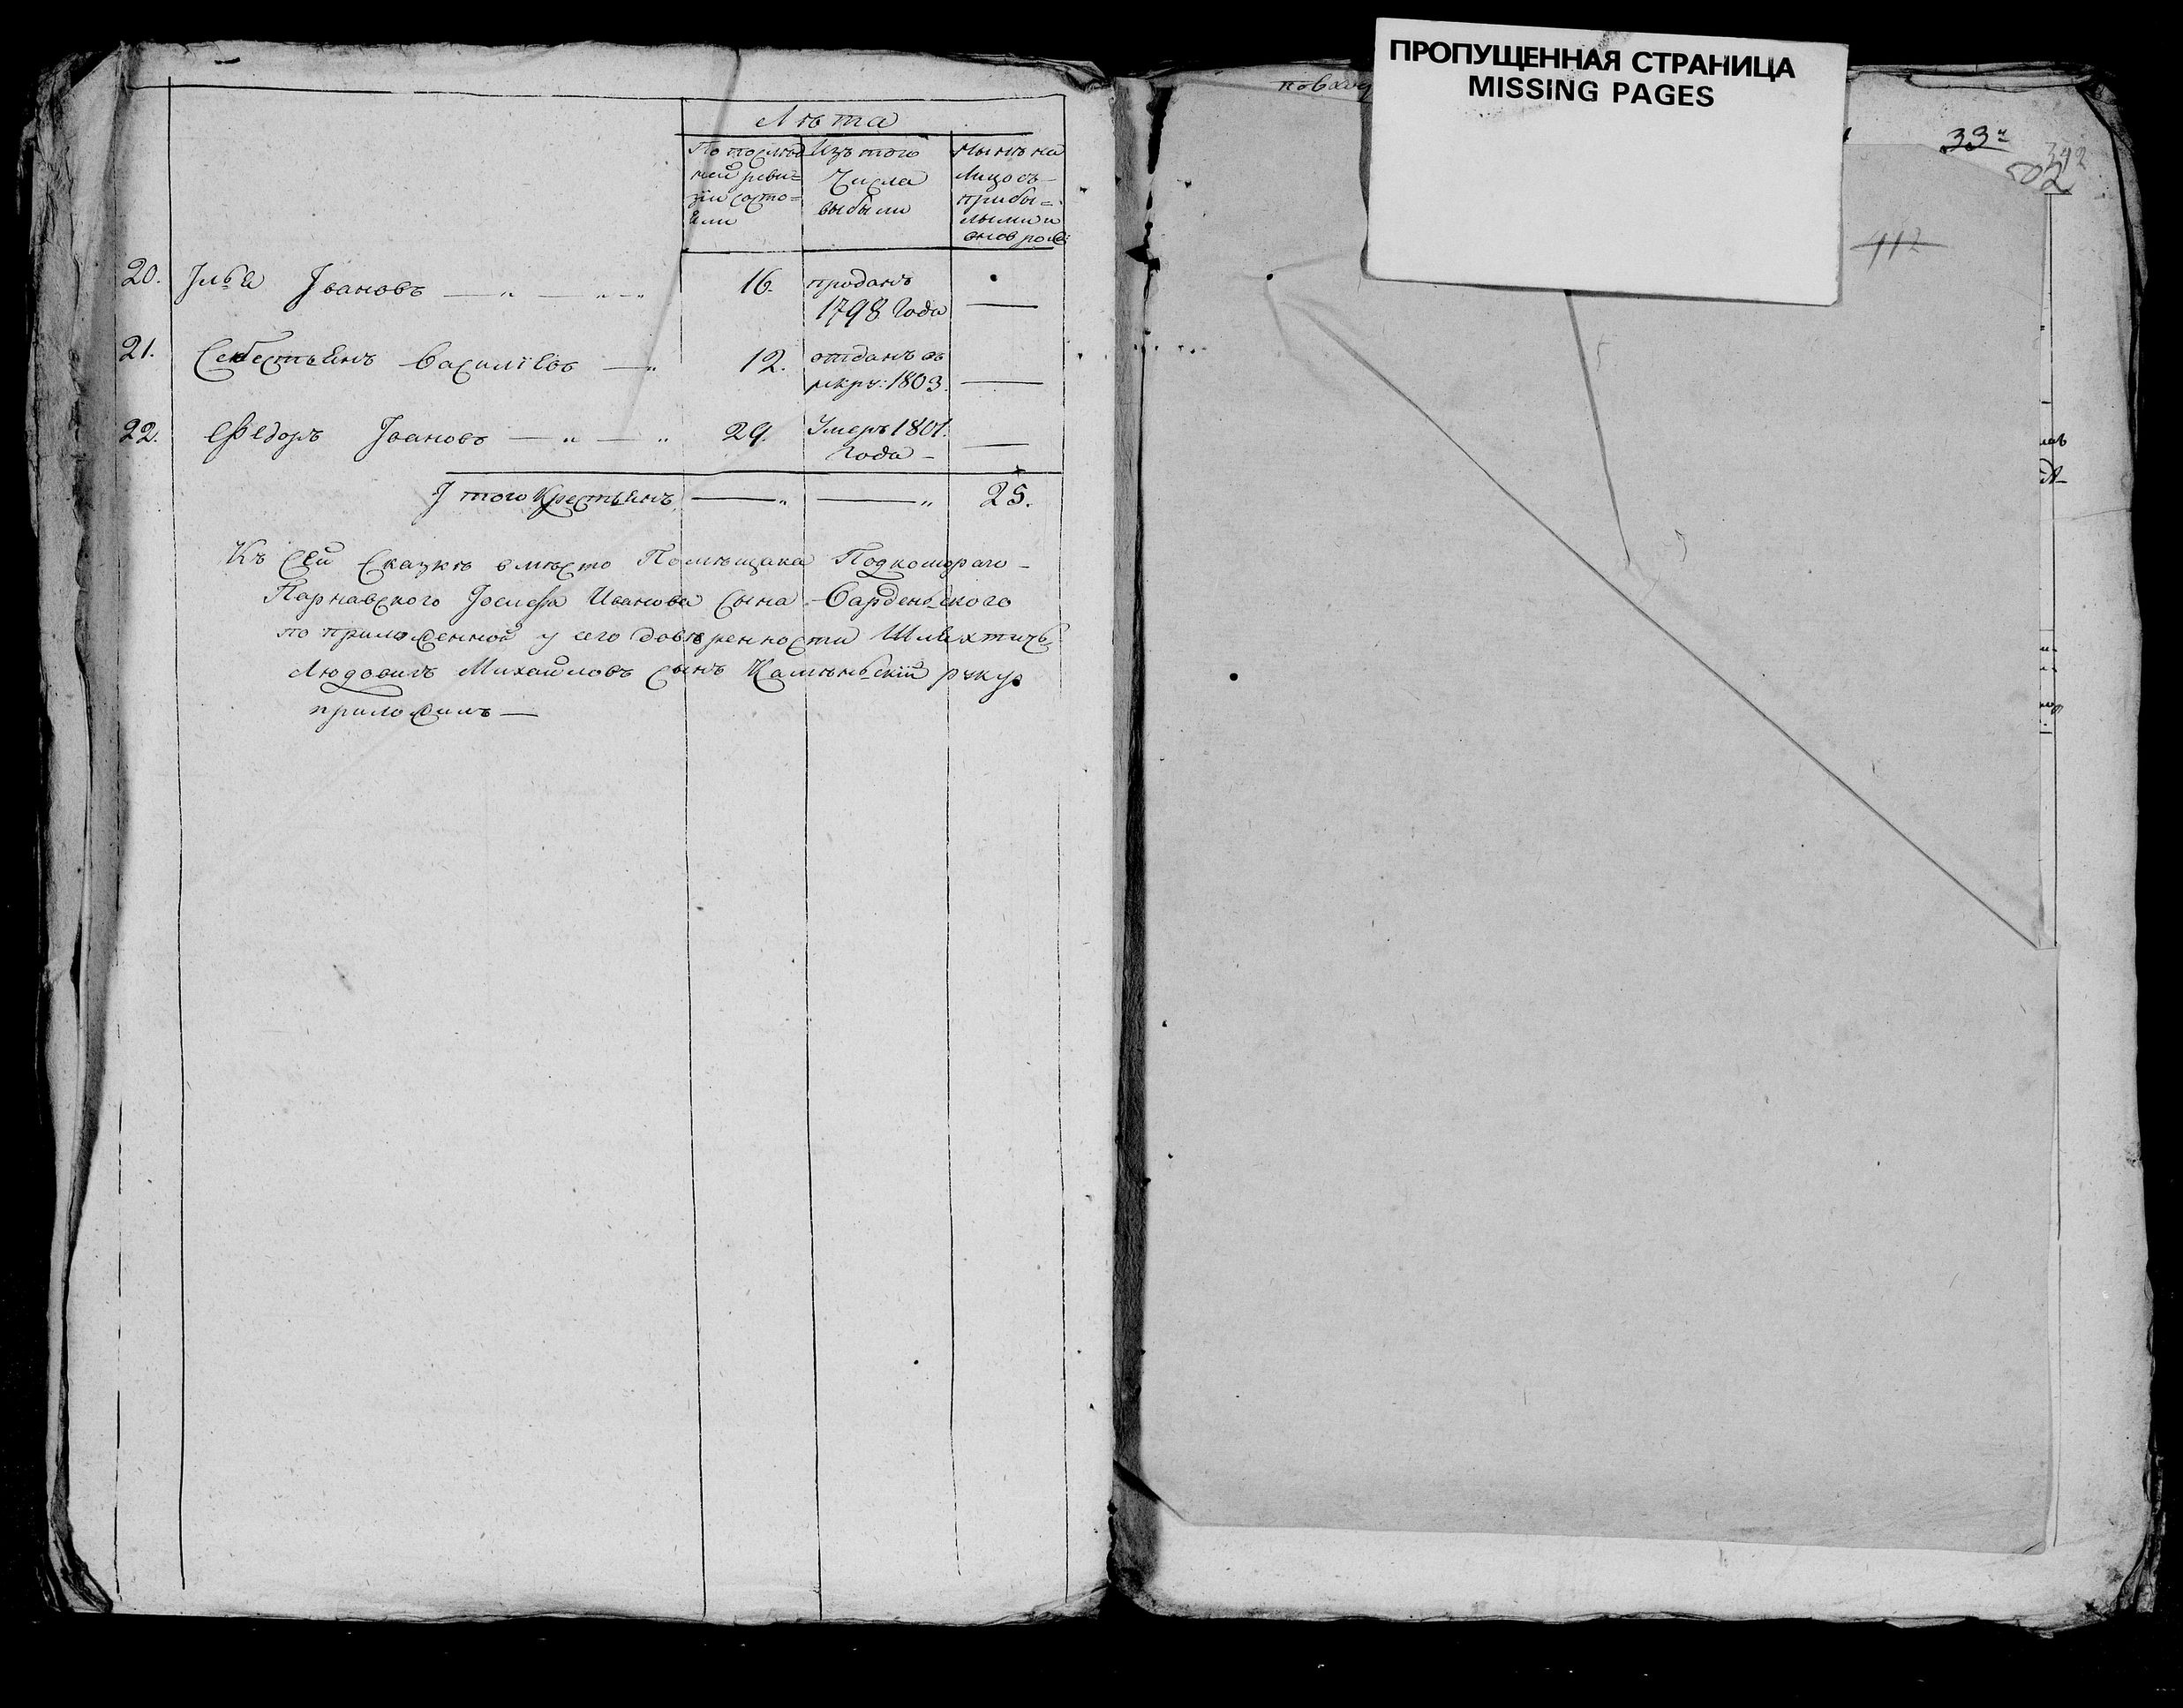 Лѣта
По послѣд Изъ того Нынѣ на
ней реви= Числа Лицо съ
зіи состо= выбыли прибы=
яли лыми и
20. Ілья Івановъ — „ — „ — „ 16. проданъ
1798 Года —
21. Севестьянъ Василіевъ — „ 12. отданъ въ
рекру: 1803. —
22. Ѳедоръ Івановъ — „ — „ 29. Умеръ 1801.
Года — —
Ітого Крестьянъ — „ — „ 25.
Къ сей Сказкѣ вмѣсто Помѣщика Подкомораго
Парнавского Іосифа Иванова сына Барденьского
по приложенной у сего довѣренности Шляхтичь
Людовикъ Михайловъ сынъ Каменьскій руку
приложилъ —
ПРОПУЩЕННАЯ СТРАНИЦА
MISSING PAGES
33
502
412